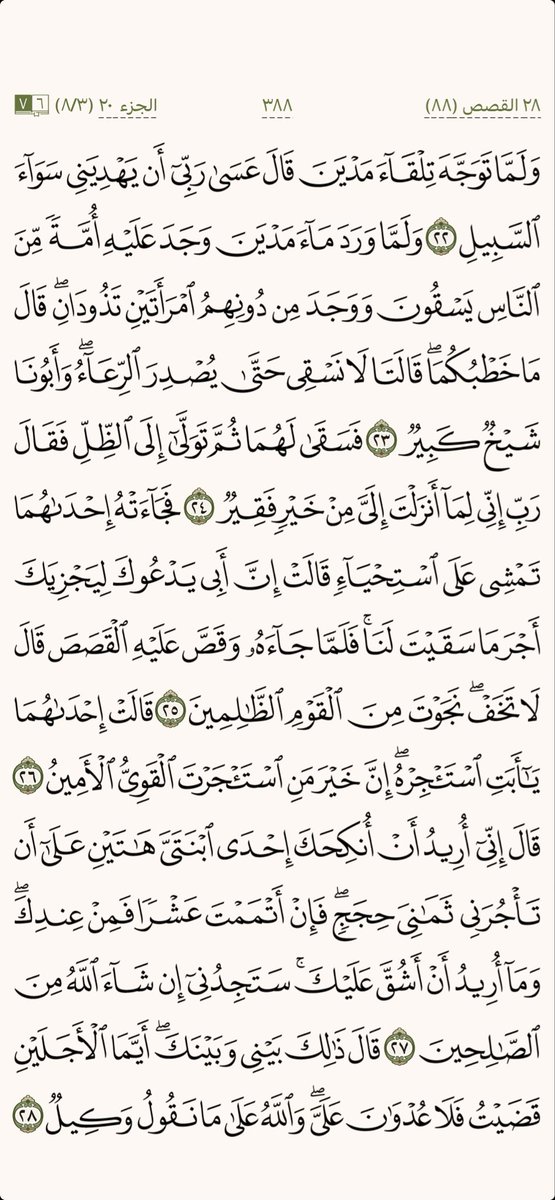 ٢٨ القصص (٨٨) ٣٨٨ الجزء ٢٠ (٨/٣) ٦ ٧
وَلَمَّا تَوَجَّهَ تِلْقَآءَ مَدْيَنَ قَالَ عَسَىٰ رَبِّىٓ أَن يَهْدِيَنِى سَوَآءَ
ٱلسَّبِيلِ ٢٢ وَلَمَّا وَرَدَ مَآءَ مَدْيَنَ وَجَدَ عَلَيْهِ أُمَّةً مِّنَ
ٱلنَّاسِ يَسْقُونَ وَوَجَدَ مِن دُونِهِمُ ٱمْرَأَتَيْنِ تَذُودَانِۖ قَالَ
مَا خَطْبُكُمَاۖ قَالَتَا لَا نَسْقِى حَتَّىٰ يُصْدِرَ ٱلرِّعَآءُۖ وَأَبُونَا
شَيْخٌ كَبِيرٌ ٢٣ فَسَقَىٰ لَهُمَا ثُمَّ تَوَلَّىٰٓ إِلَى ٱلظِّلِّ فَقَالَ
رَبِّ إِنِّى لِمَآ أَنزَلْتَ إِلَىَّ مِنْ خَيْرٍ فَقِيرٌ ٢٤ فَجَآءَتْهُ إِحْدَىٰهُمَا
تَمْشِى عَلَى ٱسْتِحْيَآءٍ قَالَتْ إِنَّ أَبِى يَدْعُوكَ لِيَجْزِيَكَ
أَجْرَ مَا سَقَيْتَ لَنَاۚ فَلَمَّا جَآءَهُۥ وَقَصَّ عَلَيْهِ ٱلْقَصَصَ قَالَ
لَا تَخَفْۖ نَجَوْتَ مِنَ ٱلْقَوْمِ ٱلظَّـٰلِمِينَ ٢٥ قَالَتْ إِحْدَىٰهُمَا
يَـٰٓأَبَتِ ٱسْتَـْٔجِرْهُۖ إِنَّ خَيْرَ مَنِ ٱسْتَـْٔجَرْتَ ٱلْقَوِىُّ ٱلْأَمِينُ ٢٦
قَالَ إِنِّىٓ أُرِيدُ أَنْ أُنكِحَكَ إِحْدَى ٱبْنَتَىَّ هَـٰتَيْنِ عَلَىٰٓ أَن
تَأْجُرَنِى ثَمَـٰنِىَ حِجَجٍۖ فَإِنْ أَتْمَمْتَ عَشْرًا فَمِنْ عِندِكَۖ
وَمَآ أُرِيدُ أَنْ أَشُقَّ عَلَيْكَۚ سَتَجِدُنِىٓ إِن شَآءَ ٱللَّهُ مِنَ
ٱلصَّـٰلِحِينَ ٢٧ قَالَ ذَٰلِكَ بَيْنِى وَبَيْنَكَۖ أَيَّمَا ٱلْأَجَلَيْنِ
قَضَيْتُ فَلَا عُدْوَٰنَ عَلَىَّۖ وَٱللَّهُ عَلَىٰ مَا نَقُولُ وَكِيلٌ ٢٨